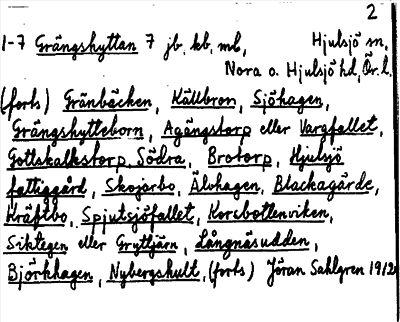 2
1-7 Grängshyttan 7 jb, kb, ml, Hjulsjö sn,
Nora o. Hjulsjö hd, Ör. l.
(forts) Gränbäcken, Källbron, Sjöhagen,
Grängshytteborn, Agängstorp eller Vargfallet,
Gottskalkstorp, Södra, Brotorp, Hjulsjö
fattiggård, Skojarbo, Älvhagen, Blackagärde,
Kräftbo, Spjutsjöfallet, Korsbottenviken,
Siktegen eller Gryttjärn, Långnäsudden,
Björkhagen, Nybergshult, (forts) Jöran Sahlgren 1912